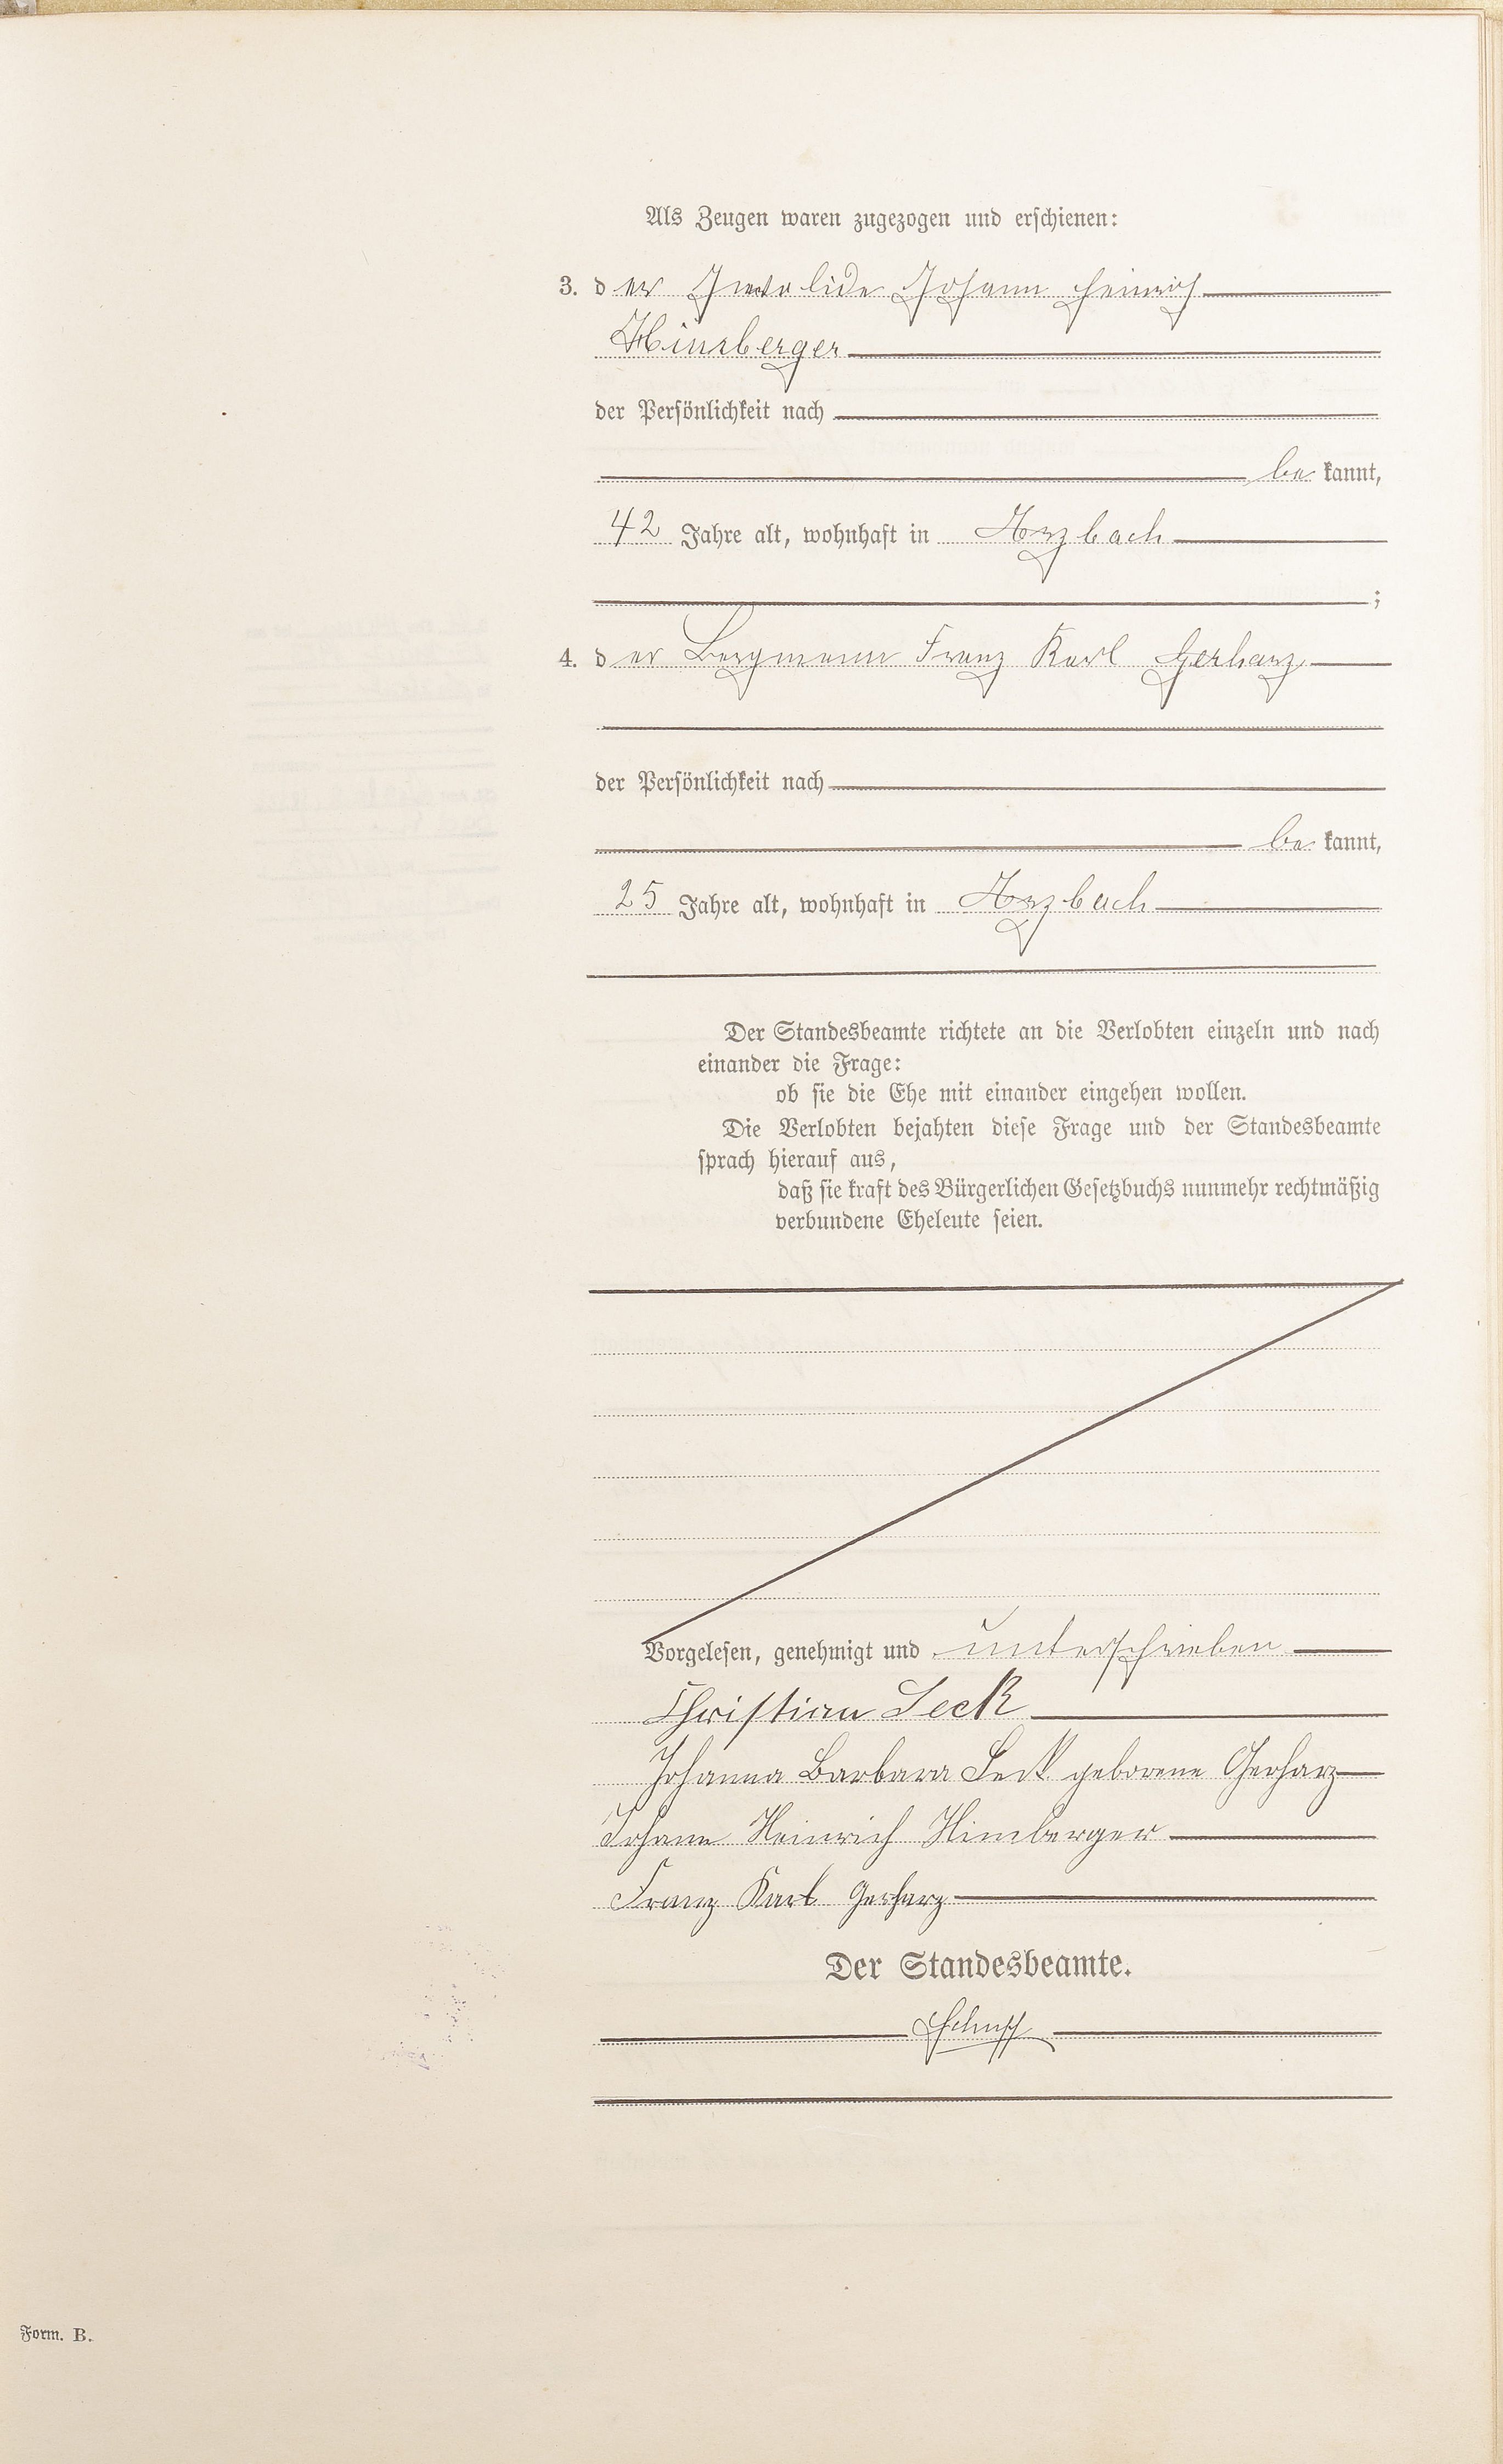 Als Zeugen waren zugezogen und erschienen:
3. der Invalide Johann Heinrich
Himberger
der Persönlichkeit nach
be kannt,
42 Jahre alt, wohnhaft in Arzbach
;
4. der Bergmann Franz Karl Gerharz
der Persönlichkeit nach
be kannt,
25 Jahre alt, wohnhaft in Arzbach
Der Standesbeamte richtete an die Verlobten einzeln und nach
einander die Frage:
ob sie die Ehe mit einander eingehen wollen.
Die Verlobten bejahten diese Frage und der Standesbeamte
sprach hierauf aus,
daß sie kraft des Bürgerlichen Gesetzbuchs nunmehr rechtmäßig
verbundene Eheleute seien.
Vorgelesen, genehmigt und unterschrieben
Christian Seck
Johanna Barbara Seck geborene Gerharz
Johann Heinrich Himberger
Franz Karl Gerharz
Der Standesbeamte.
Form. B.